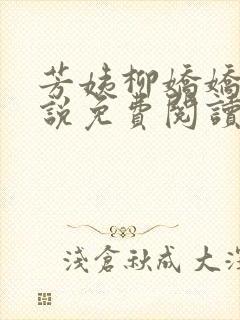 芳姨柳嬌嬌
說免費閱讀
淺倉秋成 大深